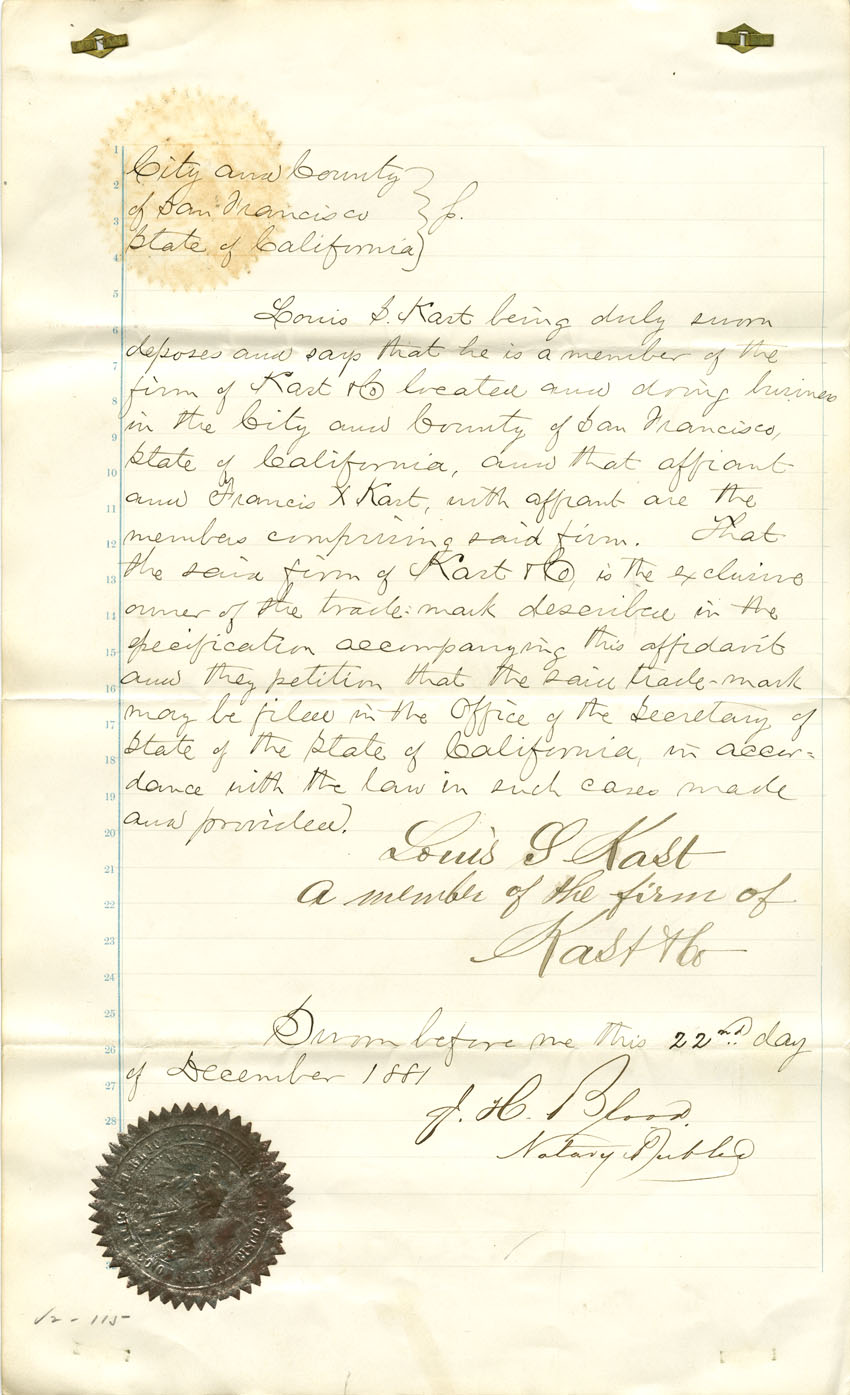 City and County
of San Francisco } ss.
State of California
Louis S. Kast being duly sworn
deposes and says that he is a member of the
firm of Kast & Co located and doing business
in the City and County of San Francisco,
State of California, and that affiant
and Francis X Kast, with affiant are the
members comprising said firm. That
the said firm of Kast & Co, is the exclusive
owner of the trade-mark described in the
specification accompanying this affidavit
and they petition that the said trade-mark
may be filed in the Office of the Secretary of
State of the State of California, in accor-
dance with the law in such cases made
and provided.
Louis S Kast
A member of the firm of
Kast & Co
Sworn before me this 22nd day
of December 1881
J. H. Blood.
Notary Public
1
2
3
4
5
6
7
8
9
10
11
12
13
14
15
16
17
18
19
20
21
22
23
24
25
26
27
28